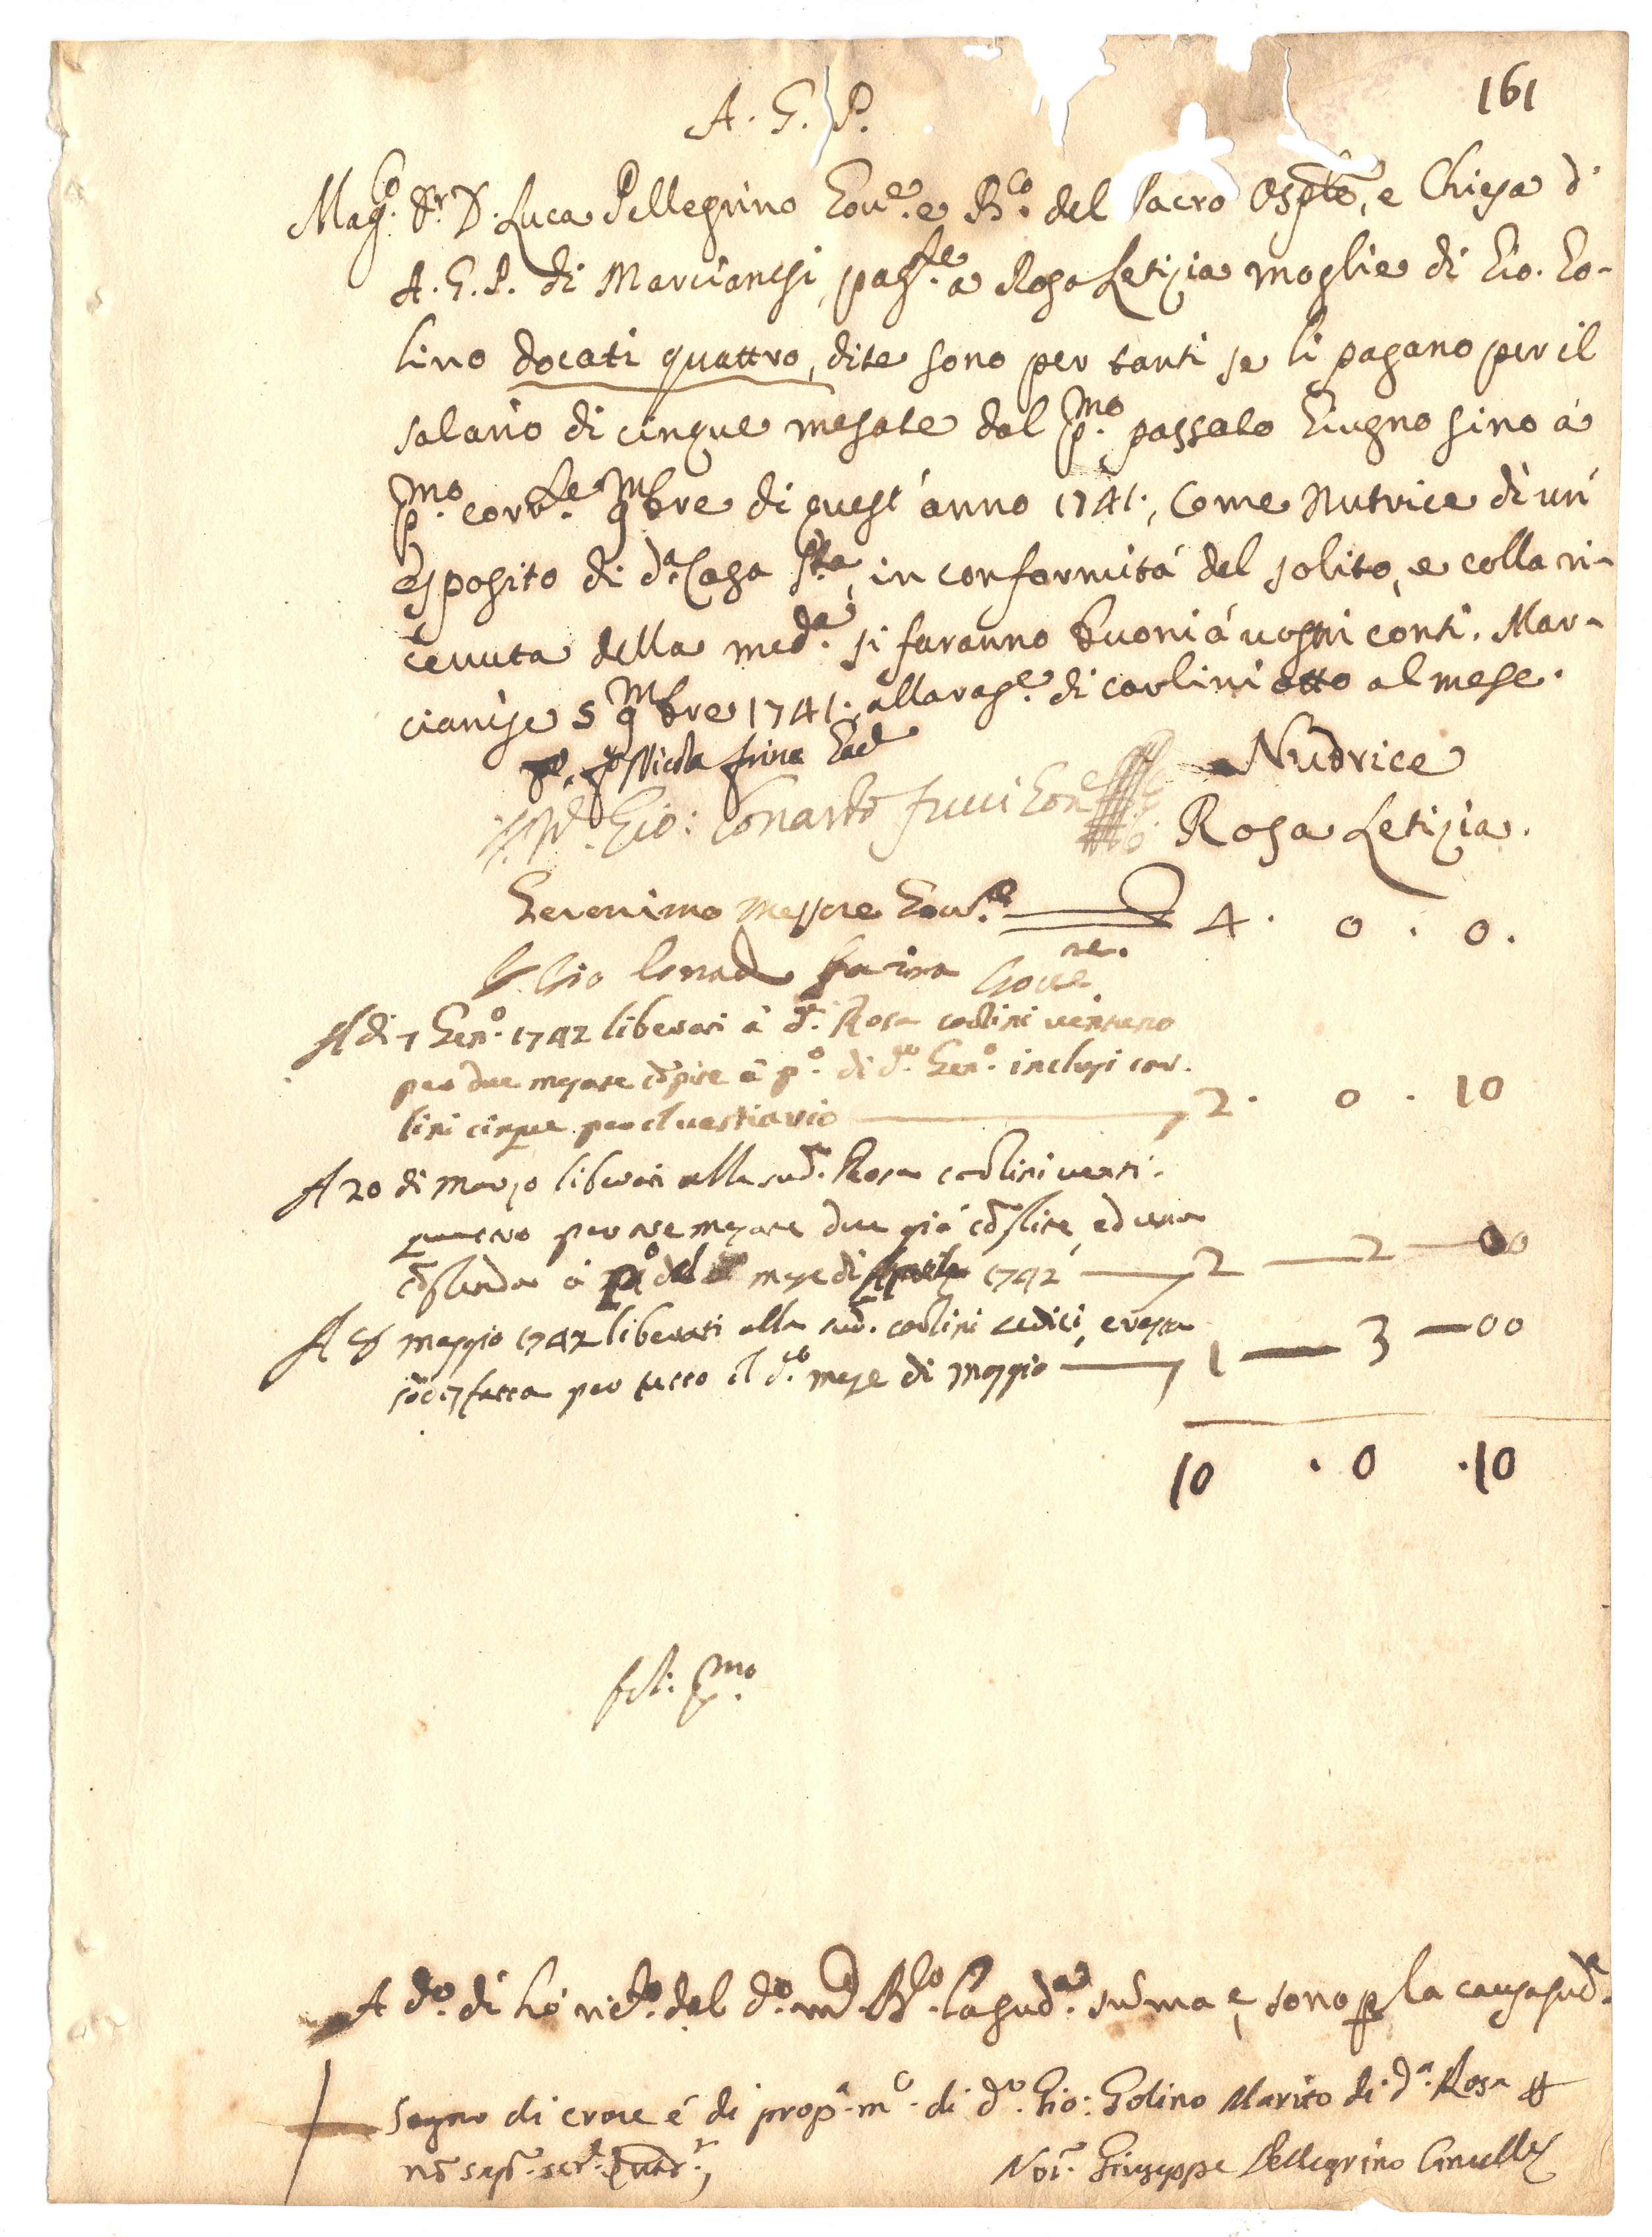 161
A. G. P.
Mag.co Sr. D. Luca Pellegrino Gov.e e R.co del Sacro Osp.le, e Chiesa d'
A. G. P. di Marcianesi, pag.te a Rosa Letizia moglie di Gio. Go-
lino docati quattro, dite sono per tanti se li pagano per il
salario di cinque mesate dal p.mo passato Giugno sino à
p.mo corr.te 9mbre di quest'anno 1741., Come Nutrice di un'
esposito di d.a Casa S.ta, in conformità del solito, e colla ri-
cevuta della med.a si faranno buoni à vostri conti. Mar-
cianise 5 9mbre 1741., alla rag.e di carlini otto al mese.
Nicola
Nudrice
Gio: Gov.e
Rosa Letizia.
Geronimo Messore Gov.re 4. 0. 0.
Gio Lonad Farina Gove.ne.
A di 7 Gen.o 1742 liberati à d.a Rosa carlini ventuno
per due mesate cõpite à p.o di d.o Gen.o inclusi car-
lini cinque per il vestiario 2. 0. 10
A 20 di Marzo liberati alla sud.a Rosa carlini venti-
quattro per tre mesate due già cõplite, ed una
cõplenda à p.o del mese di Aprile 1742 2 — 2 — 00
A 8 Maggio 1742 liberati alla sud.a carlini sedici, e resta
sodisfatta per tutto il d.o mese di Maggio 1 — 3 — 00
10 . 0 .10
fol: p.mo
A d.o di hò ric.to dal d.o md. R.co la sud.a summa, e sono p la causa sud.a
Segno di croce é di prop.a m.o di d.o Gio: Golino Marito di d.a Rosa
nõ sap.
Not.r Giuseppe Pellegrino